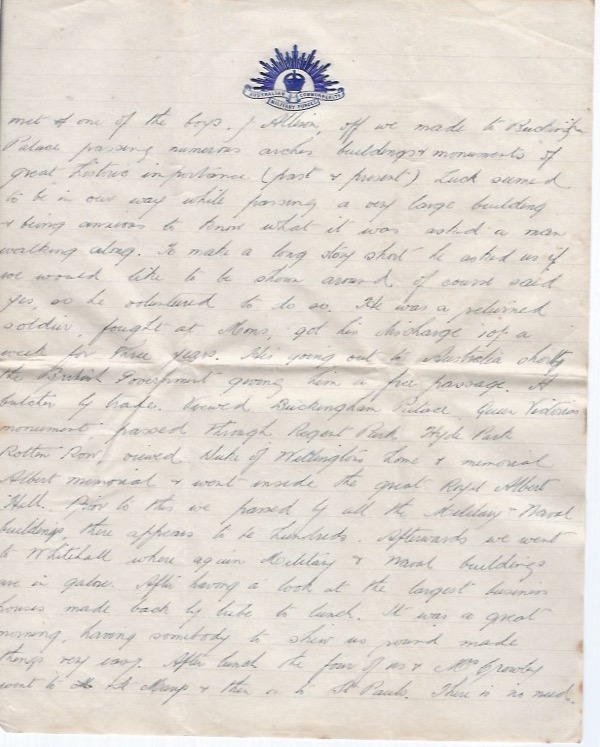 AUSTRALIAN COMMONWEALTH
MILITARY FORCES
met one of the boys. J Allison, off we made to
Palace passing numerous arches buildings & monuments of
great historic importance (past & present) Luck seemed
to be in our way while passing a very large building
& being anxious to know what it was asked a man
walking along. To make a long story short he asked us if
we would like to be shown around, of course said
yes, so he volunteered to do so. He was a returned
soldier, fought at Mons, got his discharge 10/- a
week for three years. He's going out to Australia shortly
the British Government giving him a free passage. A
butcher by trade. Viewed Buckingham Palace, Queen Victorias
monument passed through Regent Park, Hyde Park
Rotten Row, viewed Duke of Wellingtons home & memorial
Albert memorial & went inside the great Royal Albert
Hall. Prior to this we passed by all the Military & Naval
buildings, there appears to be hundreds. Afterwards we went
to Whitehall where again Military & Naval buildings
are in galore. After having a look at the largest business
houses made back by tube to lunch. It was a great
morning, having somebody to show us round made
things very easy. After lunch the four of us & Mrs Crowley
went to St & then on to St Pauls. There is no need